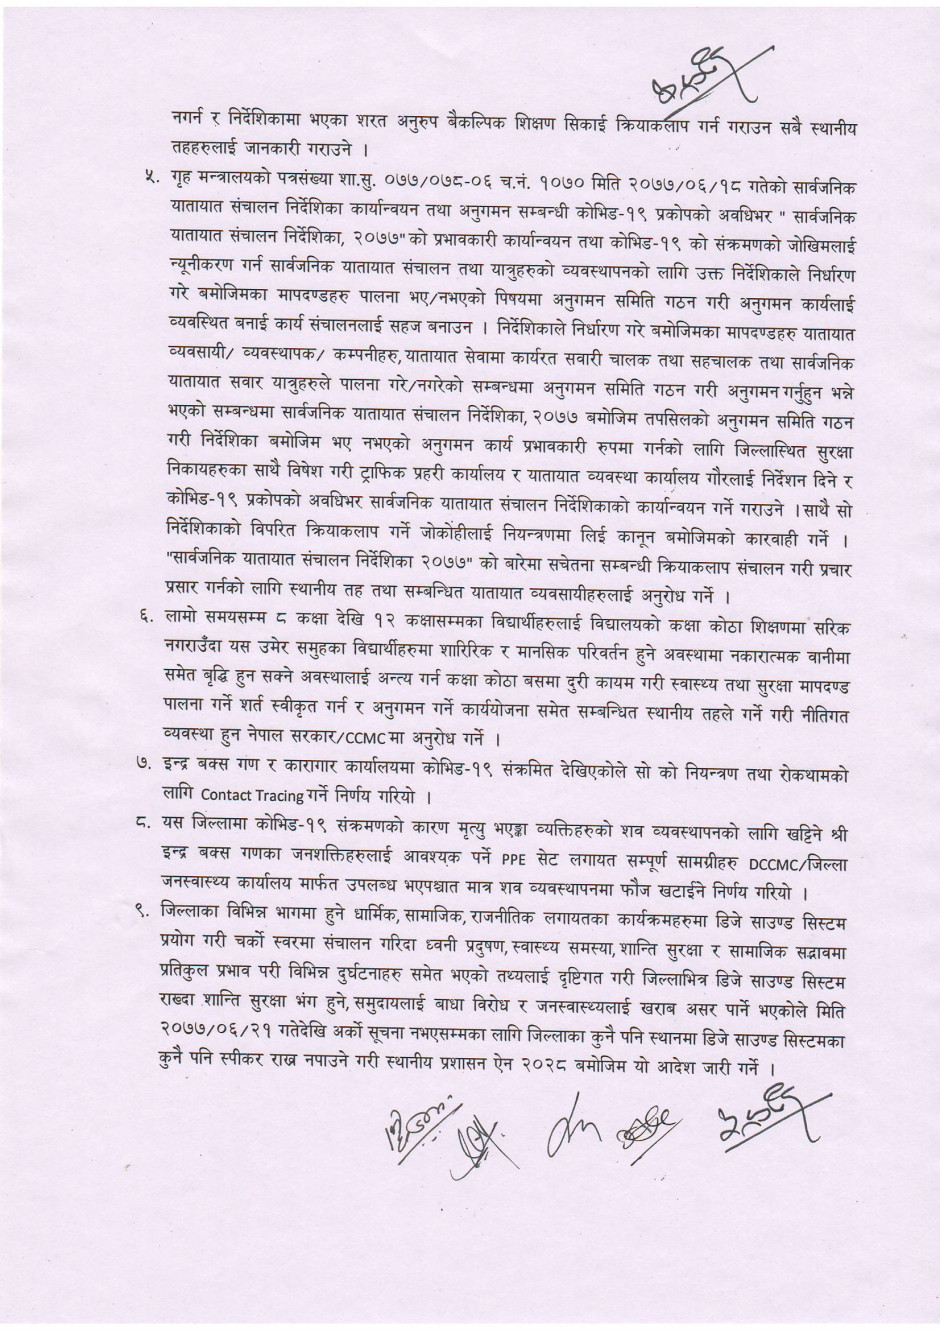 नगर्न र निर्देशिकामा भएका शरत अनुरुप बैकल्पिक शिक्षण सिकाई क्रियाकलाप गर्न गराउन सबै स्थानीय
तहहरुलाई जानकारी गराउने ।
५. गृह मन्त्रालयको पत्रसंख्या शा.सु. ०७७/०७८-०६ च.नं. १०७० मिति २०७७/०६/१८ गतेको सार्वजनिक
यातायात संचालन निर्देशिका कार्यान्वयन तथा अनुगमन सम्बन्धी कोभिड-१९ प्रकोपको अवधिभर " सार्वजनिक
यातायात संचालन निर्देशिका, २०७७" को प्रभावकारी कार्यान्वयन तथा कोभिड-१९ को संक्रमणको जोखिमलाई
न्यूनीकरण गर्न सार्वजनिक यातायात संचालन तथा यात्रुहरुको व्यवस्थापनको लागि उक्त निर्देशिकाले निर्धारण
गरे बमोजिमका मापदण्डहरु पालना भए/नभएको पिषयमा अनुगमन समिति गठन गरी अनुगमन कार्यलाई
व्यवस्थित बनाई कार्य संचालनलाई सहज बनाउन । निर्देशिकाले निर्धारण गरे बमोजिमका मापदण्डहरु यातायात
व्यवसायी/ व्यवस्थापक/ कम्पनीहरु, यातायात सेवामा कार्यरत सवारी चालक तथा सहचालक तथा सार्वजनिक
यातायात सवार यात्रुहरुले पालना गरे/नगरेको सम्बन्धमा अनुगमन समिति गठन गरी अनुगमन गर्नुहुन भन्ने
भएको सम्बन्धमा सार्वजनिक यातायात संचालन निर्देशिका, २०७७ बमोजिम तपसिलको अनुगमन समिति गठन
गरी निर्देशिका बमोजिम भए नभएको अनुगमन कार्य प्रभावकारी रुपमा गर्नको लागि जिल्लास्थित सुरक्षा
निकायहरुका साथै विषेश गरी ट्राफिक प्रहरी कार्यालय र यातायात व्यवस्था कार्यालय गौरलाई निर्देशन दिने र
कोभिड-१९ प्रकोपको अवधिभर सार्वजनिक यातायात संचालन निर्देशिकाको कार्यान्वयन गर्ने गराउने । साथै सो
निर्देशिकाको विपरित क्रियाकलाप गर्ने जोकोहीलाई नियन्त्रणमा लिई कानून बमोजिमको कारवाही गर्ने ।
"सार्वजनिक यातायात संचालन निर्देशिका २०७७" को बारेमा सचेतना सम्बन्धी क्रियाकलाप संचालन गरी प्रचार
प्रसार गर्नको लागि स्थानीय तह तथा सम्बन्धित यातायात व्यवसायीहरुलाई अनुरोध गर्ने ।
६. लामो समयसम्म ८ कक्षा देखि १२ कक्षासम्मका विद्यार्थीहरुलाई विद्यालयको कक्षा कोठा शिक्षणमा सरिक
नगराउँदा यस उमेर समुहका विद्यार्थीहरुमा शारिरिक र मानसिक परिवर्तन हुने अवस्थामा नकारात्मक वानीमा
समेत बृद्धि हुन सक्ने अवस्थालाई अन्त्य गर्न कक्षा कोठा बसमा दुरी कायम गरी स्वास्थ्य तथा सुरक्षा मापदण्ड
पालना गर्ने शर्त स्वीकृत गर्न र अनुगमन गर्ने कार्ययोजना समेत सम्बन्धित स्थानीय तहले गर्ने गरी नीतिगत
व्यवस्था हुन नेपाल सरकार/CCMC मा अनुरोध गर्ने ।
७. इन्द्र बक्स गण र कारागार कार्यालयमा कोभिड-१९ संक्रमित देखिएकोले सो को नियन्त्रण तथा रोकथामको
लागि Contact Tracing गर्ने निर्णय गरियो ।
८. यस जिल्लामा कोभिड-१९ संक्रमणको कारण मृत्यु भएका व्यक्तिहरुको शव व्यवस्थापनको लागि खट्टिने श्री
इन्द्र बक्स गणका जनशक्तिहरुलाई आवश्यक पर्ने PPE सेट लगायत सम्पूर्ण सामग्रीहरु DCCMC/जिल्ला
जनस्वास्थ्य कार्यालय मार्फत उपलब्ध भएपश्चात मात्र शव व्यवस्थापनमा फौज खटाईने निर्णय गरियो ।
९. जिल्लाका विभिन्न भागमा हुने धार्मिक, सामाजिक, राजनीतिक लगायतका कार्यक्रमहरुमा डिजे साउण्ड सिस्टम
प्रयोग गरी चर्को स्वरमा संचालन गरिदा ध्वनी प्रदुषण, स्वास्थ्य समस्या, शान्ति सुरक्षा र सामाजिक सद्भावमा
प्रतिकुल प्रभाव परी विभिन्न दुर्घटनाहरु समेत भएको तथ्यलाई दृष्टिगत गरी जिल्लाभित्र डिजे साउण्ड सिस्टम
राख्दा शान्ति सुरक्षा भंग हुने, समुदायलाई बाधा विरोध र जनस्वास्थ्यलाई खराब असर पार्ने भएकोले मिति
२०७७/०६/२१ गतेदेखि अर्को सूचना नभएसम्मका लागि जिल्लाका कुनै पनि स्थानमा डिजे साउण्ड सिस्टमका
कुनै पनि स्पीकर राख्न नपाउने गरी स्थानीय प्रशासन ऐन २०२८ बमोजिम यो आदेश जारी गर्ने ।